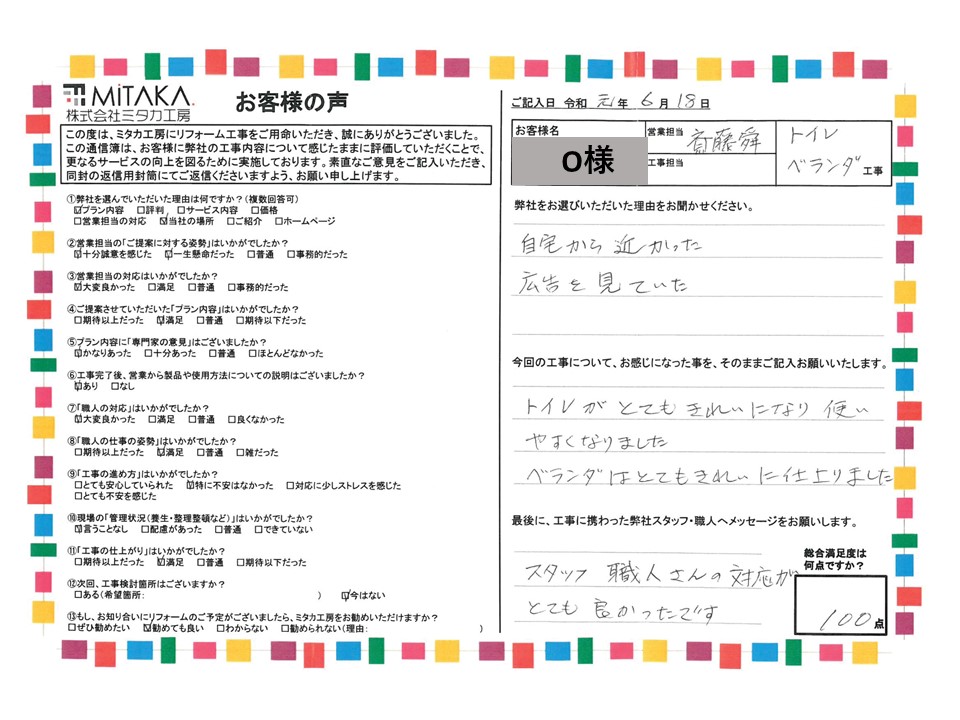 MiTAKA.
株式会社ミタカ工房
お客様の声
この度は、ミタカ工房にリフォーム工事をご用命いただき、誠にありがとうございました。
この通信簿は、お客様に弊社の工事内容について感じたままに評価していただくことで、
更なるサービスの向上を図るために実施しております。素直なご意見をご記入いただき、
同封の返信用封筒にてご返信くださいますよう、お願い申し上げます。
①弊社を選んでいただいた理由は何ですか？(複数回答可)
☑プラン内容 □評判, □サービス内容 □価格
□営業担当の対応 ☑当社の場所 □ご紹介 □ホームページ
②営業担当の「ご提案に対する姿勢」はいかがでしたか？
☑十分誠意を感じた ☑一生懸命だった □普通 □事務的だった
③営業担当の対応はいかがでしたか？
☑大変良かった □満足 □普通 □事務的だった
④ご提案させていただいた「プラン内容」はいかがでしたか？
□期待以上だった ☑満足 □普通 □期待以下だった
⑤プラン内容に「専門家の意見」はございましたか？
☑かなりあった □十分あった □普通 □ほとんどなかった
⑥工事完了後、営業から製品や使用方法についての説明はございましたか？
☑あり □なし
⑦「職人の対応」はいかがでしたか？
☑大変良かった □満足 □普通 □良くなかった
⑧「職人の仕事の姿勢」はいかがでしたか？
□期待以上だった ☑満足 □普通 □雑だった
⑨「工事の進め方」はいかがでしたか？
□とても安心していられた ☑特に不安はなかった □対応に少しストレスを感じた
□とても不安を感じた
⑩現場の「管理状況(養生・整理整頓など)」はいかがでしたか？
☑言うことなし □配慮があった □普通 □できていない
⑪「工事の仕上がり」はいかがでしたか？
□期待以上だった ☑満足 □普通 □期待以下だった
⑫次回、工事検討箇所はございますか？
□ある(希望箇所: ) ☑今はない
⑬もし、お知り合いにリフォームのご予定がございましたら、ミタカ工房をお勧めいただけますか？
□ぜひ勧めたい ☑勧めても良い □わからない □勧められない(理由: )
ご記入日 令和 元年 6月 18日
お客様名 O様
営業担当 斉藤舜
工事担当
トイレ
ベランダ 工事
弊社をお選びいただいた理由をお聞かせください。
自宅から近かった
広告を見ていた
今回の工事について、お感じになった事を、そのままご記入お願いいたします。
トイレがとてもきれいになり使い
やすくなりました
ベランダはとてもきれいに仕上りました
最後に、工事に携わった弊社スタッフ・職人へメッセージをお願いします。
スタッフ 職人さんの対応が
とても良かったです
総合満足度は
何点ですか？
100点